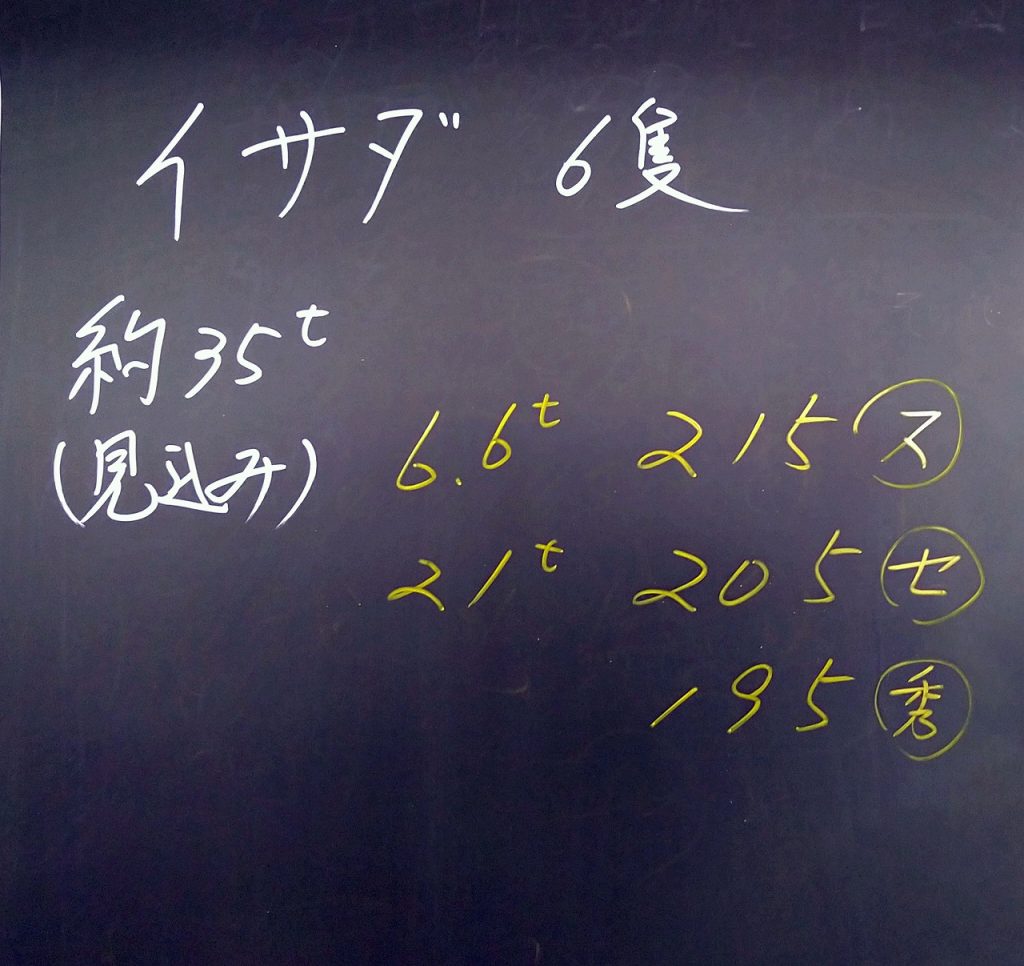 イサダ 6隻
約35t
(見込み)
6.6t 215 ス
21t 205 セ
195 秀